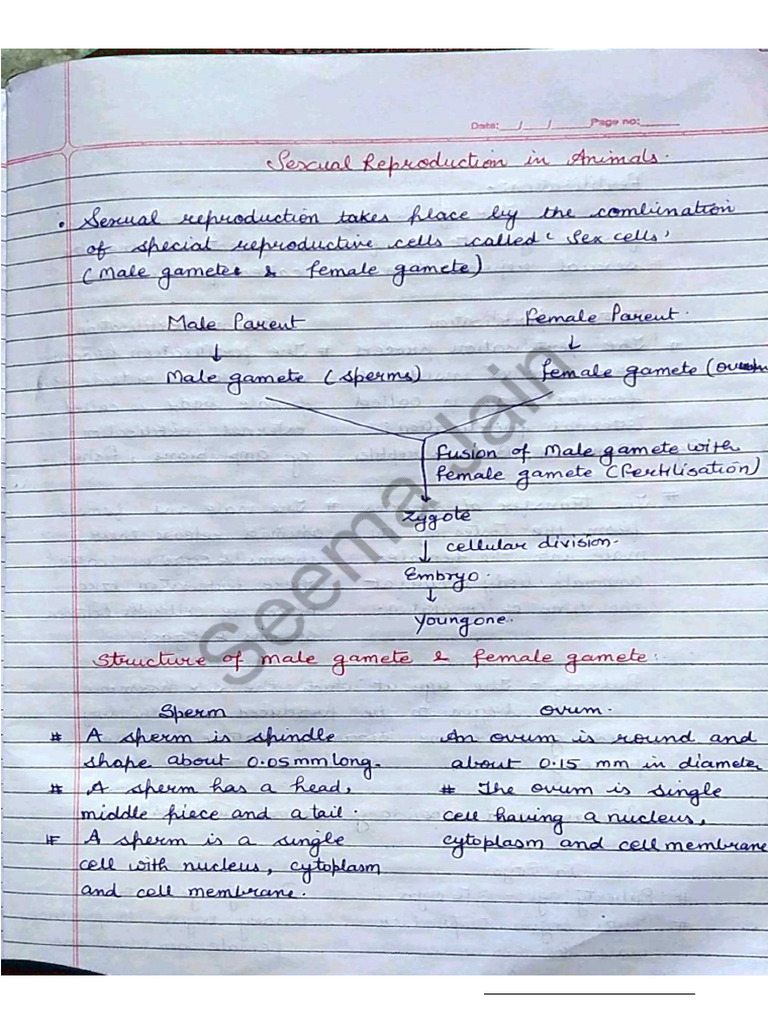 Date:___/___/_____Page no:_____
Sexual Reproduction in Animals.
• Sexual reproduction takes place by the combination
of special reproductive cells called 'Sex cells'
(Male gamete & female gamete)
Male Parent Female Parent.
↓ ↓
Male gamete (Sperms) female gamete (
fusion of Male gamete with
female gamete (Fertilisation)
Zygote
↓ cellular division.
Embryo.
↓
Youngone.
Structure of male gamete & female gamete:
Sperm Ovum.
# A sperm is spindle An ovum is round and
shape about 0.05mm long. about 0.15 mm in diameter
# A sperm has a head, # The ovum is single
middle piece and a tail. cell having a nucleus,
# A sperm is a single cytoplasm and cell membrane
cell with nucleus, cytoplasm
and cell membrane.
Seema Jain